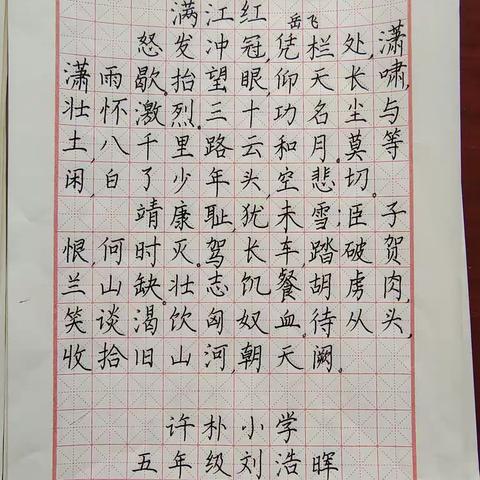 满江红
岳飞
怒发冲冠,凭栏处,潇
潇雨歇。抬望眼,仰天长啸,
壮怀激烈。三十功名尘与
土,八千里路云和月。莫等
闲,白了少年头,空悲切。
靖康耻,犹未雪;臣子
恨,何时灭。驾长车,踏破贺
兰山缺。壮志饥餐胡虏肉,
笑谈渴饮匈奴血。待从头,
收拾旧山河,朝天阙。
许朴小学
五年级刘浩晖